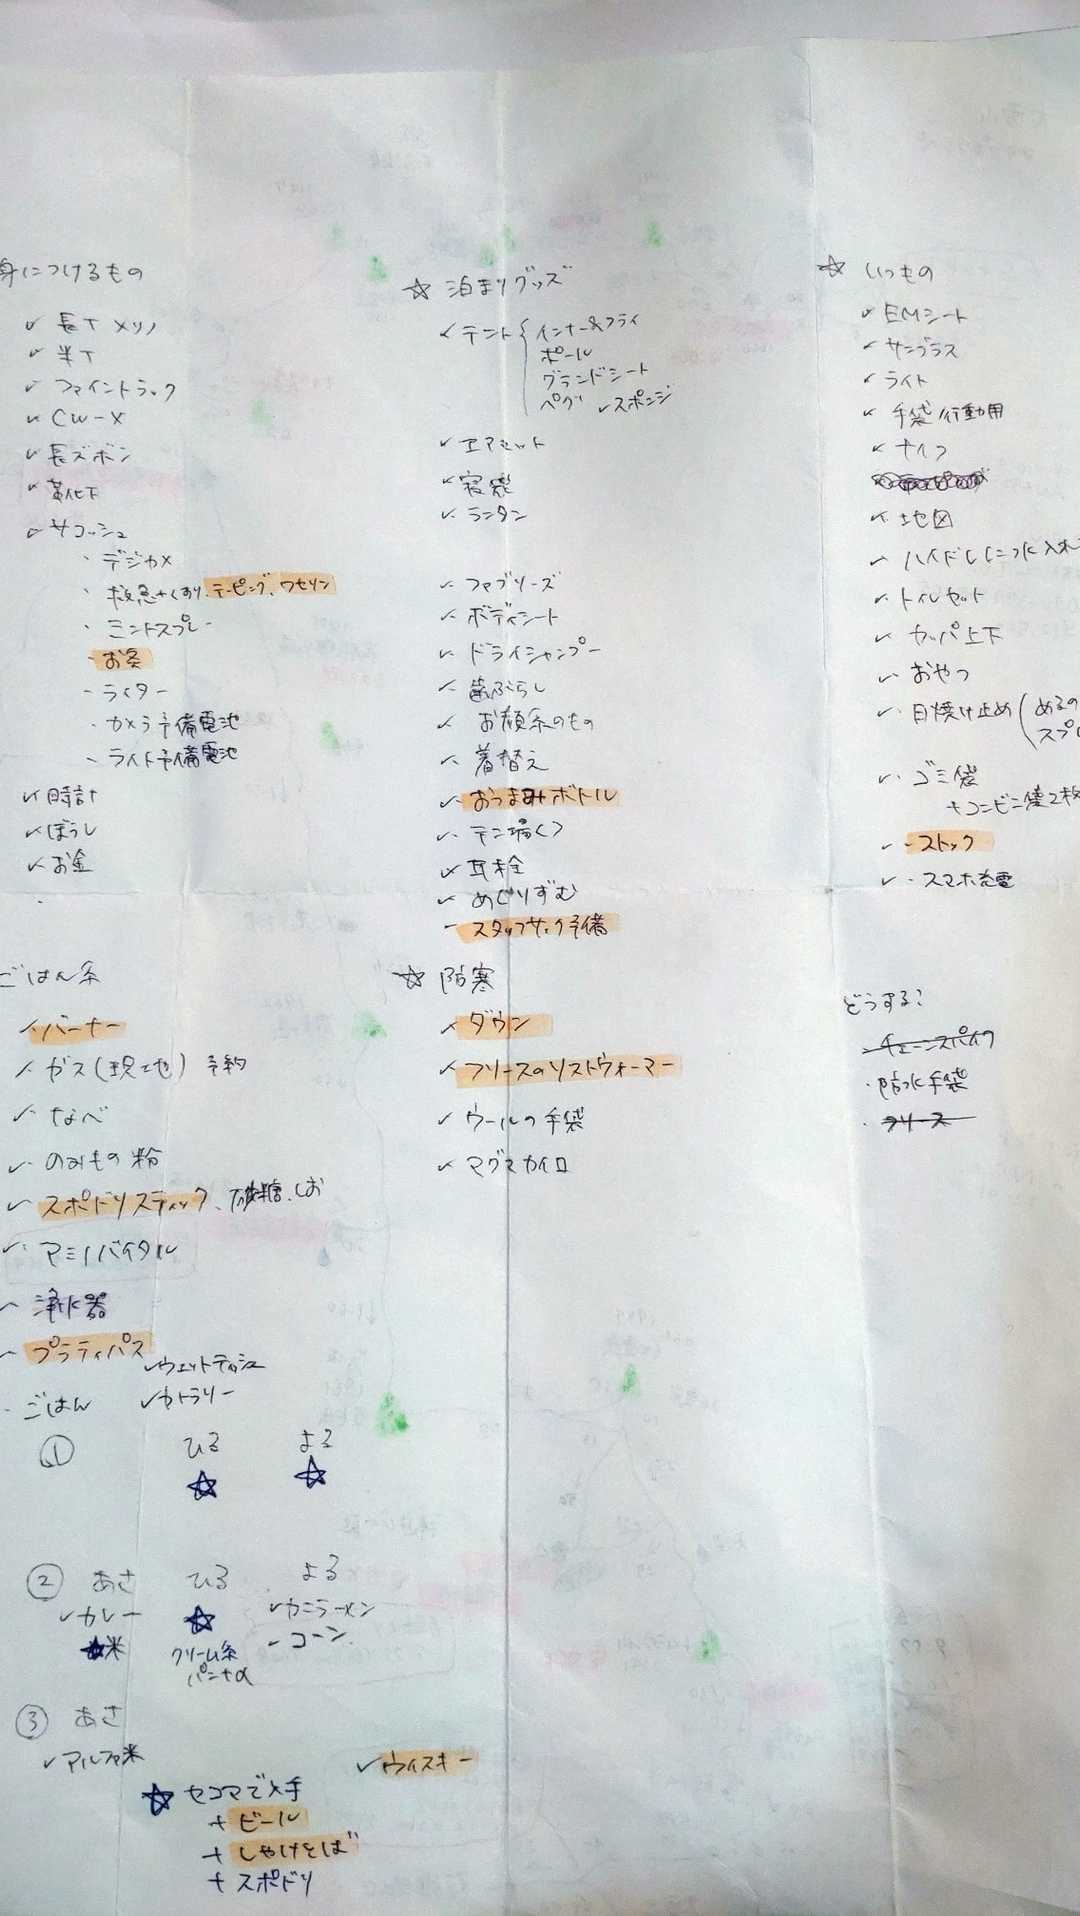 身につけるもの
✓ 長T メリノ
✓ 半T
✓ ファイントラック
✓ CW-X
✓ 長ズボン
✓ 靴下
✓ サコッシュ
・デジカメ
・救急+くすり、テーピング、ワセリン
・ミントスプレー
・お灸
・ライター
・カメラ予備電池
・ライト予備電池
✓ 時計
✓ ぼうし
✓ お金
ごはん系
✓ バーナー
✓ ガス(現地) 予約
✓ なべ
✓ のみもの 粉
✓ スポドリスティック、砂糖、しお
✓ アミノバイタル
浄水器
プラティパス
✓ ウェットティッシュ
・ごはん ✓ カトラリー
① ひる よる
☆ ☆
② あさ ひる よる
✓ カレー ☆ ✓ カニラーメン
★米 クリーム系 パン+α ✓ コーン
③ あさ
✓ アルファ米 ✓ ウイスキー
☆ セコマで入手
+ ビール
+ しゃけとば
+ スポドリ
☆ 泊まりグッズ
✓ テント { インナー&フライ
ポール
グランドシート
ペグ ✓ スポンジ
✓ エアマット
✓ 寝袋
✓ ランタン
✓ ファブリーズ
✓ ボディシート
✓ ドライシャンプー
✓ 歯ぶらし
✓ お顔系のもの
✓ 着替え
✓ おつまみボトル
✓ テン場くつ
✓ 耳栓
✓ めぐりずむ
スタッフサック予備
☆ 防寒
✓ ダウン
✓ フリースのリストウォーマー
✓ ウールの手袋
✓ マグマカイロ
☆ いつもの
✓ EMシート
✓ サングラス
✓ ライト
✓ 手袋/行動用
✓ ナイフ
✓ 地図
✓ ハイドレに水入れ
✓ トイレセット
✓ カッパ上下
✓ おやつ
✓ 日焼け止め ( めるの
スプレ
✓ ゴミ袋
+コンビニ袋2枚
✓・ストック
✓・スマホ充電
どうする?
・チェーンスパイク
・防水手袋
・フリース